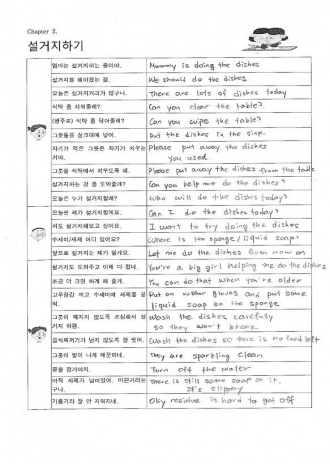 Chapter 2.
설거지하기
엄마는 설거지하는 중이야.
Mummy is doing the dishes
설거지를 해야겠는 걸.
We should do the dishes
오늘은 설거지거리가 많구나.
There are lots of dishes today
식탁 좀 치워줄래?
Can you clear the table?
(행주로) 식탁 좀 닦아줄래?
Can you wipe the table?
그릇들을 싱크대에 넣어.
Put the dishes in the sink.
자기가 먹은 그릇은 자기가 치우는
거야.
Please put away the dishes
you used
그릇을 식탁에서 치우도록 해.
Please put away the dishes from the table
설거지하는 것 좀 도와줄래?
Can you help me do the dishes?
오늘은 누가 설거지할래?
Who will do the dishes today?
오늘은 제가 설거지할게요.
Can I do the dishes today?
저도 설거지해보고 싶어요.
I want to try doing the dishes
수세미/세제 어디 있어요?
Where is the sponge/liquid soap?
앞으로 설거지는 제가 할게요.
Let me do the dishes from now on
설거지도 도와주고 이제 다 컸네.
You're a big girl helping me do the dishes
조금 더 크면 하게 해 줄게.
You can do that when you're older
고무장갑 끼고 수세미에 세제를 묻
혀.
Put on rubber gloves and put some
liquid soap on the sponge
그릇이 깨지지 않도록 조심해서 설
거지 하렴.
Wash the dishes carefully
so they won't break
음식찌꺼기가 남지 않도록 잘 씻어.
Wash the dishes so there is no food left
그릇이 빛이 나게 깨끗하네.
They are sparkling clean
물을 잠가야지.
Turn off the water
아직 세제가 남아있어. 미끈거리는
구나.
There is still some soap on it.
It's slippery
기름기라 잘 안 지워지네.
Oily residue is hard to get off